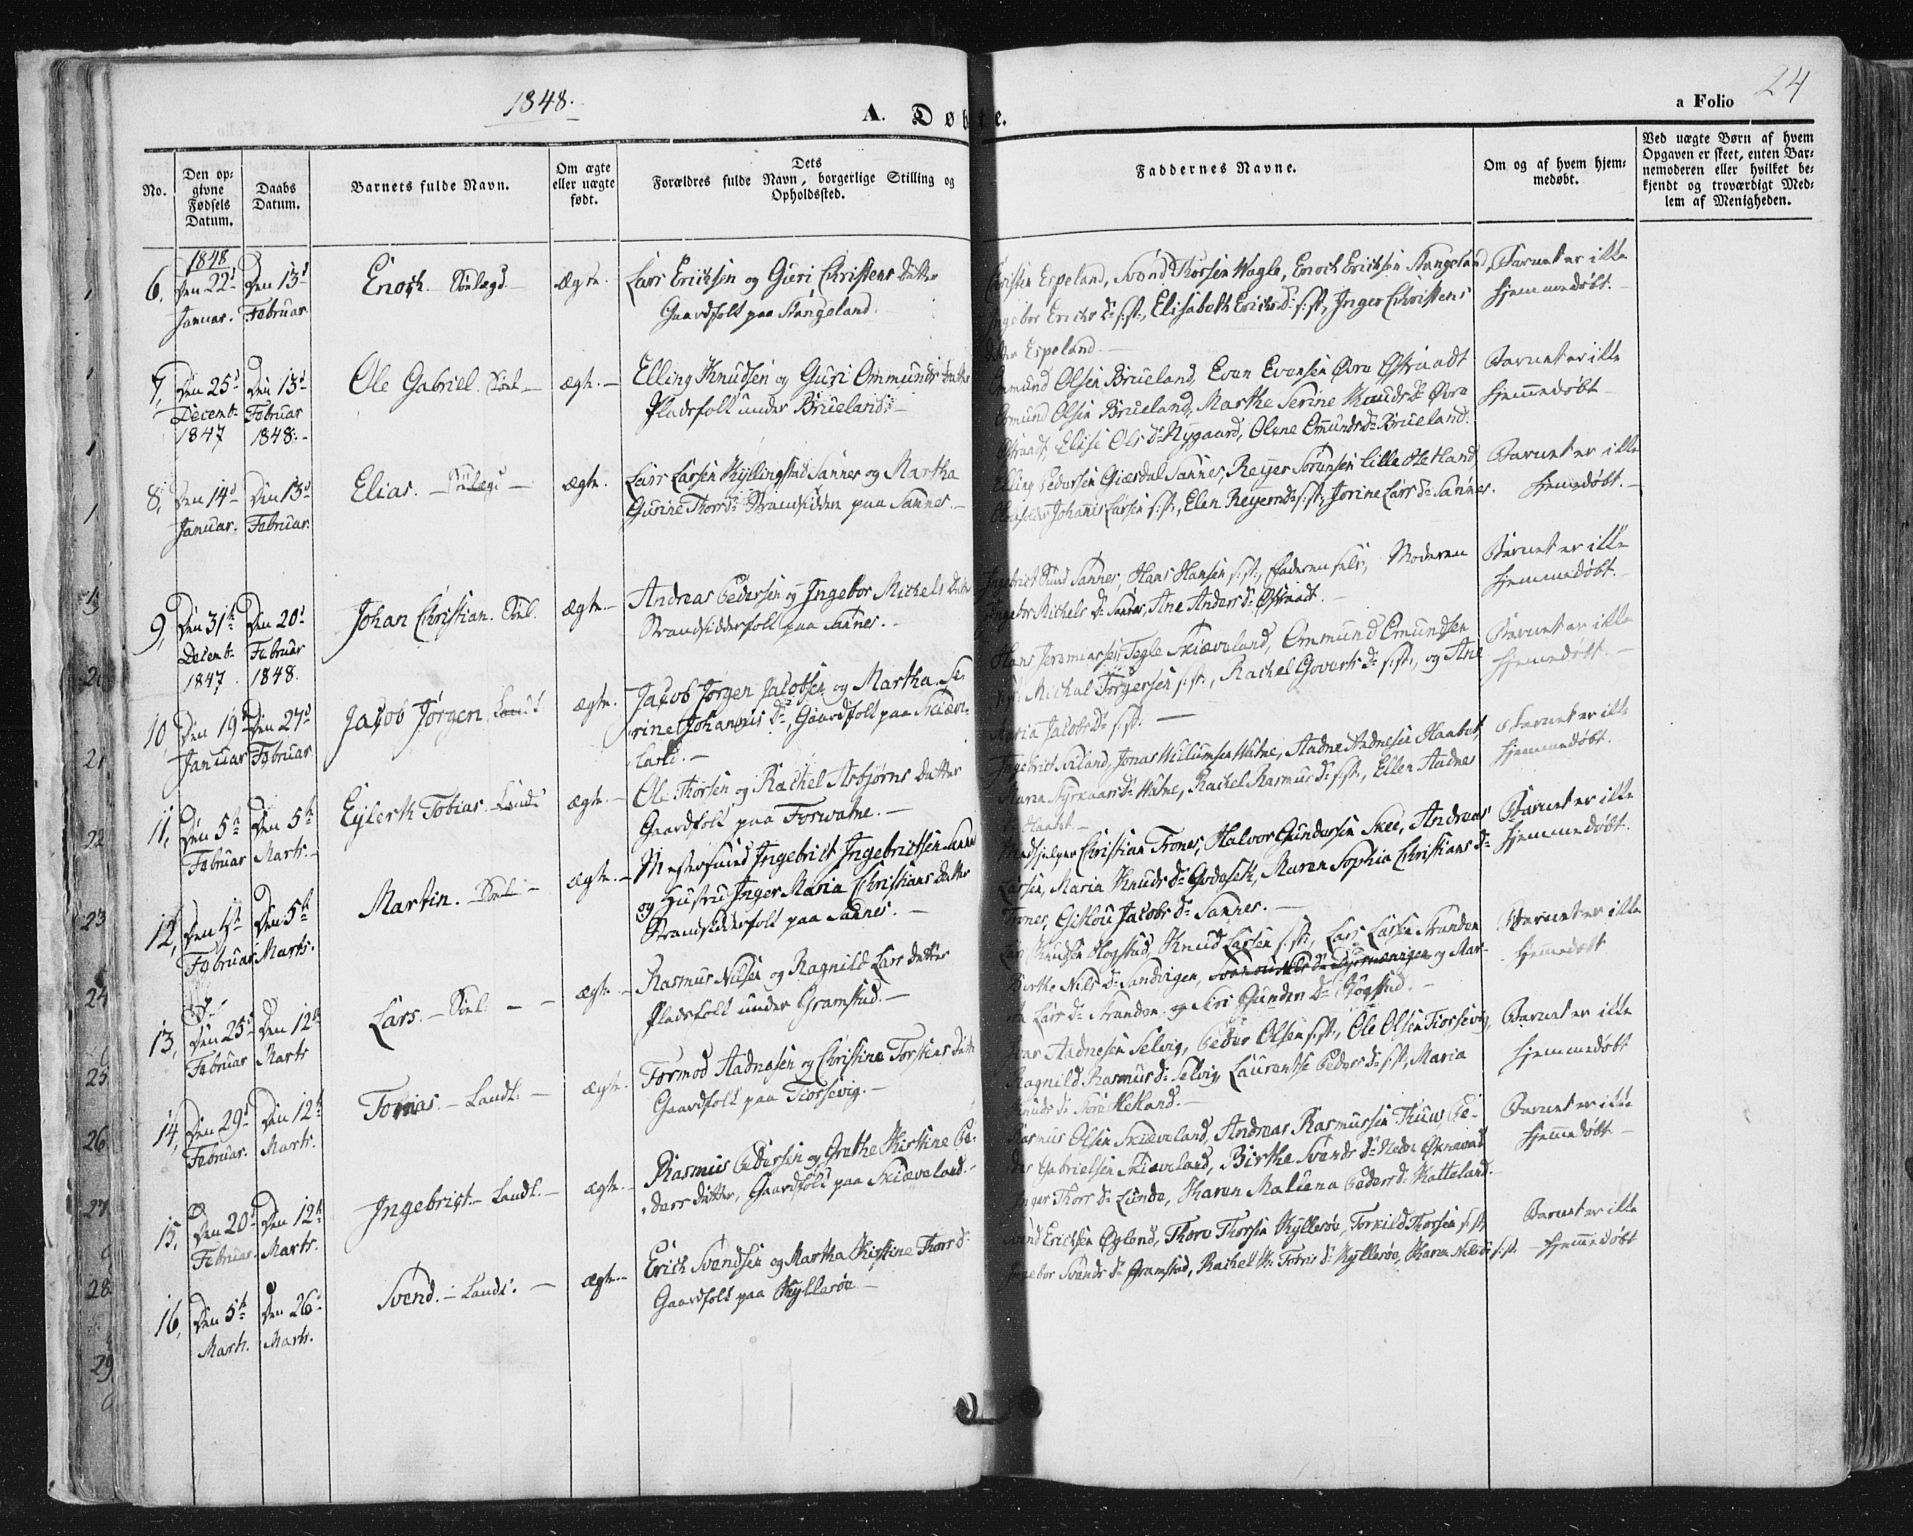 1848.
A. Døbte.
a Folio 24
No.
Den opgivne Fødsels Datum.
Daabs Datum.
Barnets fulde Navn.
Om ægte eller uægte født.
Dets Forældres fulde Navn, borgerlige Stilling og Opholdssted.
Faddernes Navne.
Om og af hvem hjemmedøbt.
Ved uægte Børn af hvem Opgaven er skeet, enten Barnemoderen eller hvilket bekjendt og troværdigt Medlem af Menigheden.
1848
6, Den 22d Januar. Den 13d Februar Enoch Ægte. Lars Erichsen og Guri Christens Datter
Gaardfolk paa Stangeland.
Christen Espeland, Svend Thorsen Wagle, Enoch Erichsen Stangeland,
Ingebor Erichs Dr s: st:, Elisabeth Erichs Dr s: st:, Inger Christens
Datter Espeland.
Barnet er ikke
hjemmedøbt.
7, Den 25d Decembr 1847 Den 13d Februar 1848. Ole Gabriel. ægte. Elling Knudsen og Guri Ommunds Datter
Pladsfolk under Brueland.
Ommund Olsen Brueland, Even Evensen Øvre Østraadt
Omund Olsen Brueland, Marthe Serine Knuds Dr Øvre
Østraadt, Elise Ols Dr Nygaard, Olene Omunds Dr Brueland.
Barnet er ikke
hjemmedøbt
8, Den 14d Januar. Den 13d Februar. Elias. ægte. Lars Larsen Kyllingstad Sannes og Martha
Gurine Thors Dr Strandsidder paa Sannes.
Elling Pedersen Giesdal Sannes, Reyer Sørensen Lille Hetland
Johannes Larsen s: st:, Elen Reyers Dr s: st:, Jorine Lars Dr Sannes.
Barnet er ikke
hjemmedøbt.
9, Den 31te Decembr 1847. Den 20d Februar 1848. Johan Christian. ægte Andreas Pedersen og Ingebor Michels Datter
Strandsidderfolk paa Sannes.
Sannes, Hans Hansen s: st:, Faderen selv, Moderen
Ingebor Michels Dr Sannes, Ane Anders Dr Østraadt.
Barnet er ikke
hjemmedøbt.
10, Den 19de Januar Den 27d Februar. Jacob Jørgen. ægte. Jacob Jørgen Jacobsen og Martha Se-
rine Johannis Dr, Gaardfolk paa Skiæve-
land.
Hans Jeremiassen Tegle Skiæveland, Ommund Omundsen
Michal Torgersen s: st:, Rachel Goverts Dr s: st:, og Ane
Maria Jacobs Dr s: st:
Barnet er ikke
hjemmedøbt.
11, Den 5te Februar Den 5te Marts. Eylerk Tobias. ægte. Ole Thorsen og Rachel Asbjørns Datter
Gaardfolk paa Forwatne.
Ingebrict Sviland, Jonas Willumsen Watne, Aadne Aadnesen Haabet
Maren Dr Watne, Rachel Rasmus Dr s: st:, Ellen Aadnes
Dr Haabet.
Barnet er ikke
hjemmedøbt.
12, Den 1te Februar Den 5te Marts. Martin. ægte. Mestersvend Ingebrict Ingebrictsen Sannes
og Hustru Inger Maria Christians Datter
Strandsidderfolk paa Sannes.
Medhjelper Christian Trones, Halvor Gundersen Skee, Andreas
Larsen, Maria Knuds Dr Godeset, Maren Sophia Christians Dr
Trones, Giskou Jacobs Dr Sannes.
Barnet er ikke
hjemmedøbt.
13, Den 25d Februar Den 12te Marts Lars. ægte. Rasmus Nilsen og Ragnild Lars Datter
Pladsfolk under Gramstad.
Lars Knudsen Hogstad, Knud Larsen s: st:, Lars Larsen Stranden
Birthe Nils Dr Sandvigen, og Mar-
tha Lars Dr Stranden og Siri Gunders Dr Hogstad.
Barnet er ikke
hjemmedøbt
14, Den 29d Februar. Den 12te Marts. Tomas. ægte. Tormod Aadnesen og Christine Torkels Datter
Gaardfolk paa Tiorsevig.
Aadnesen Selvig, Peder Olsen s: st:, Ole Olsen Tiorsevig
Ragnild Rasmus Dr Selvig Laurentse Peders Dr s: st:, Maria
Knuds Dr Store Hetland.
Barnet er ikke
hjemmedøbt
15, Den 20d Februar. Den 12te Marts. Ingebrigt. ægte. Rasmus Pedersen og Grethe Kirstine Pe-
ders Datter, Gaardfolk paa Skiæveland.
Rasmus Olsen Skiæveland, Andreas Rasmussen Thuu, Pe-
der Gabrielsen Skiæveland, Birthe Svends Dr Nedre
Inger Thors Dr Lunde, Karen Maliena Peders Dr Hatteland.
Barnet er ikke
hjemmedøbt
16, Den 5te Marts. Den 26de Marts. Svend. ægte. Erich Svendsen og Martha Kirstine Thors Dr
Gaardfolk paa Kyllesøe
Svend Erichsen Øglend, Thore Thorsen Kyllesøe, Torkild Thorsen s: st:
Ingebor Svends Dr Gramstad, Rachel Dr Kyllesøe, Karen Nils Dr s: st:
Barnet er ikke
hjemmedøbt
21
22
23
24
25
26
27
28
29